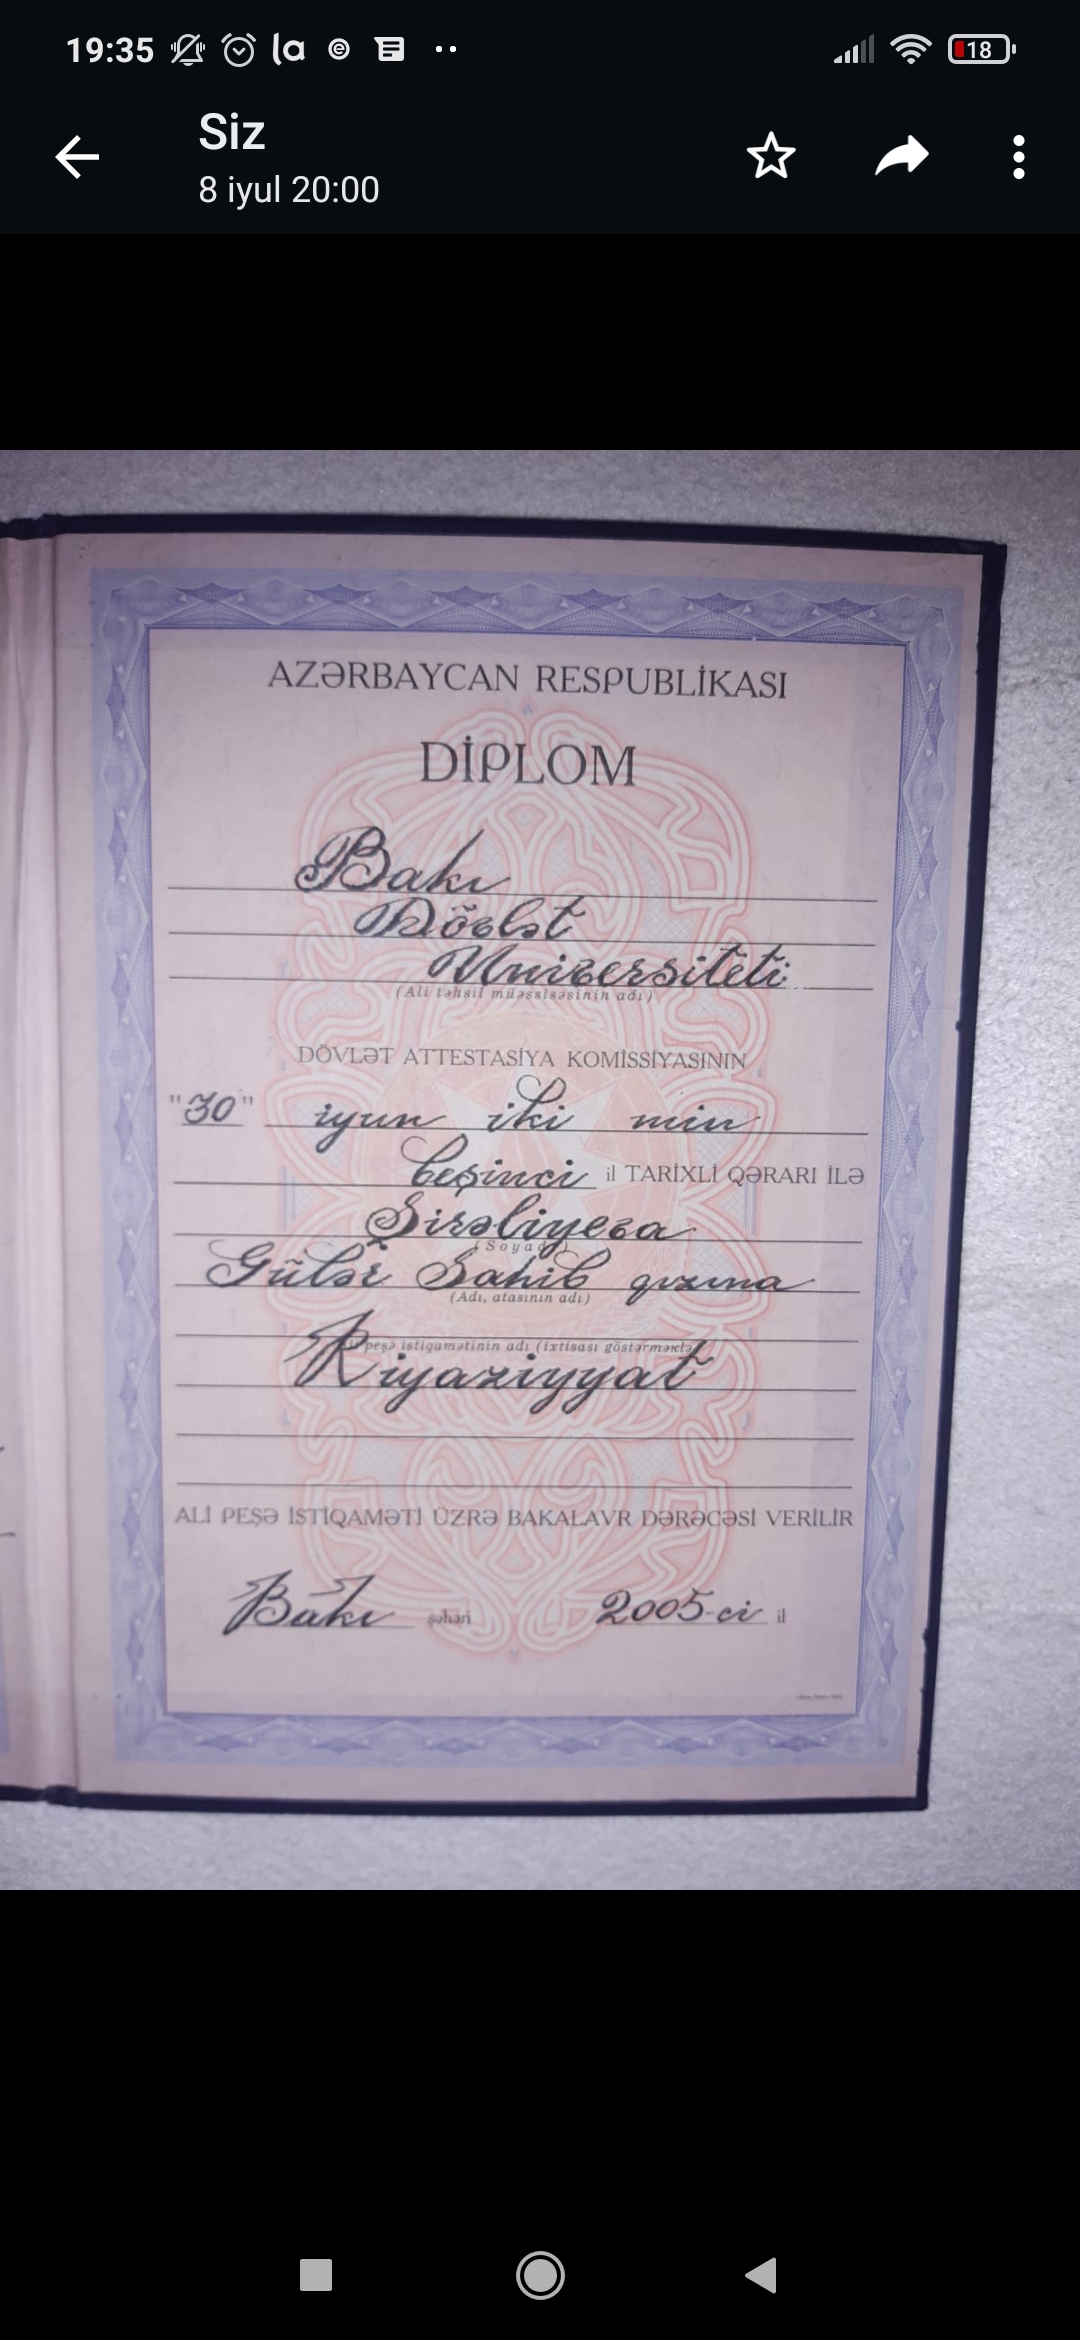 19:35 la 18
Siz
8 iyul 20:00
AZƏRBAYCAN RESPUBLİKASI
DİPLOM
Bakı
Dövlət
Universiteti
(Ali təhsil müəssisəsinin adı)
DÖVLƏT ATTESTASİYA KOMİSSİYASININ
"30" iyun iki min
beşinci il TARİXLİ QƏRARI İLƏ
Şirəliyeva
(Soyadı)
Gülər Sahib qızına
(Adı, atasının adı)
peşə istiqamətinin adı (ixtisası göstərməklə)
Riyaziyyat
ALİ PEŞƏ İSTİQAMƏTİ ÜZRƏ BAKALAVR DƏRƏCƏSİ VERİLİR
Bakı şəhəri 2005-ci il